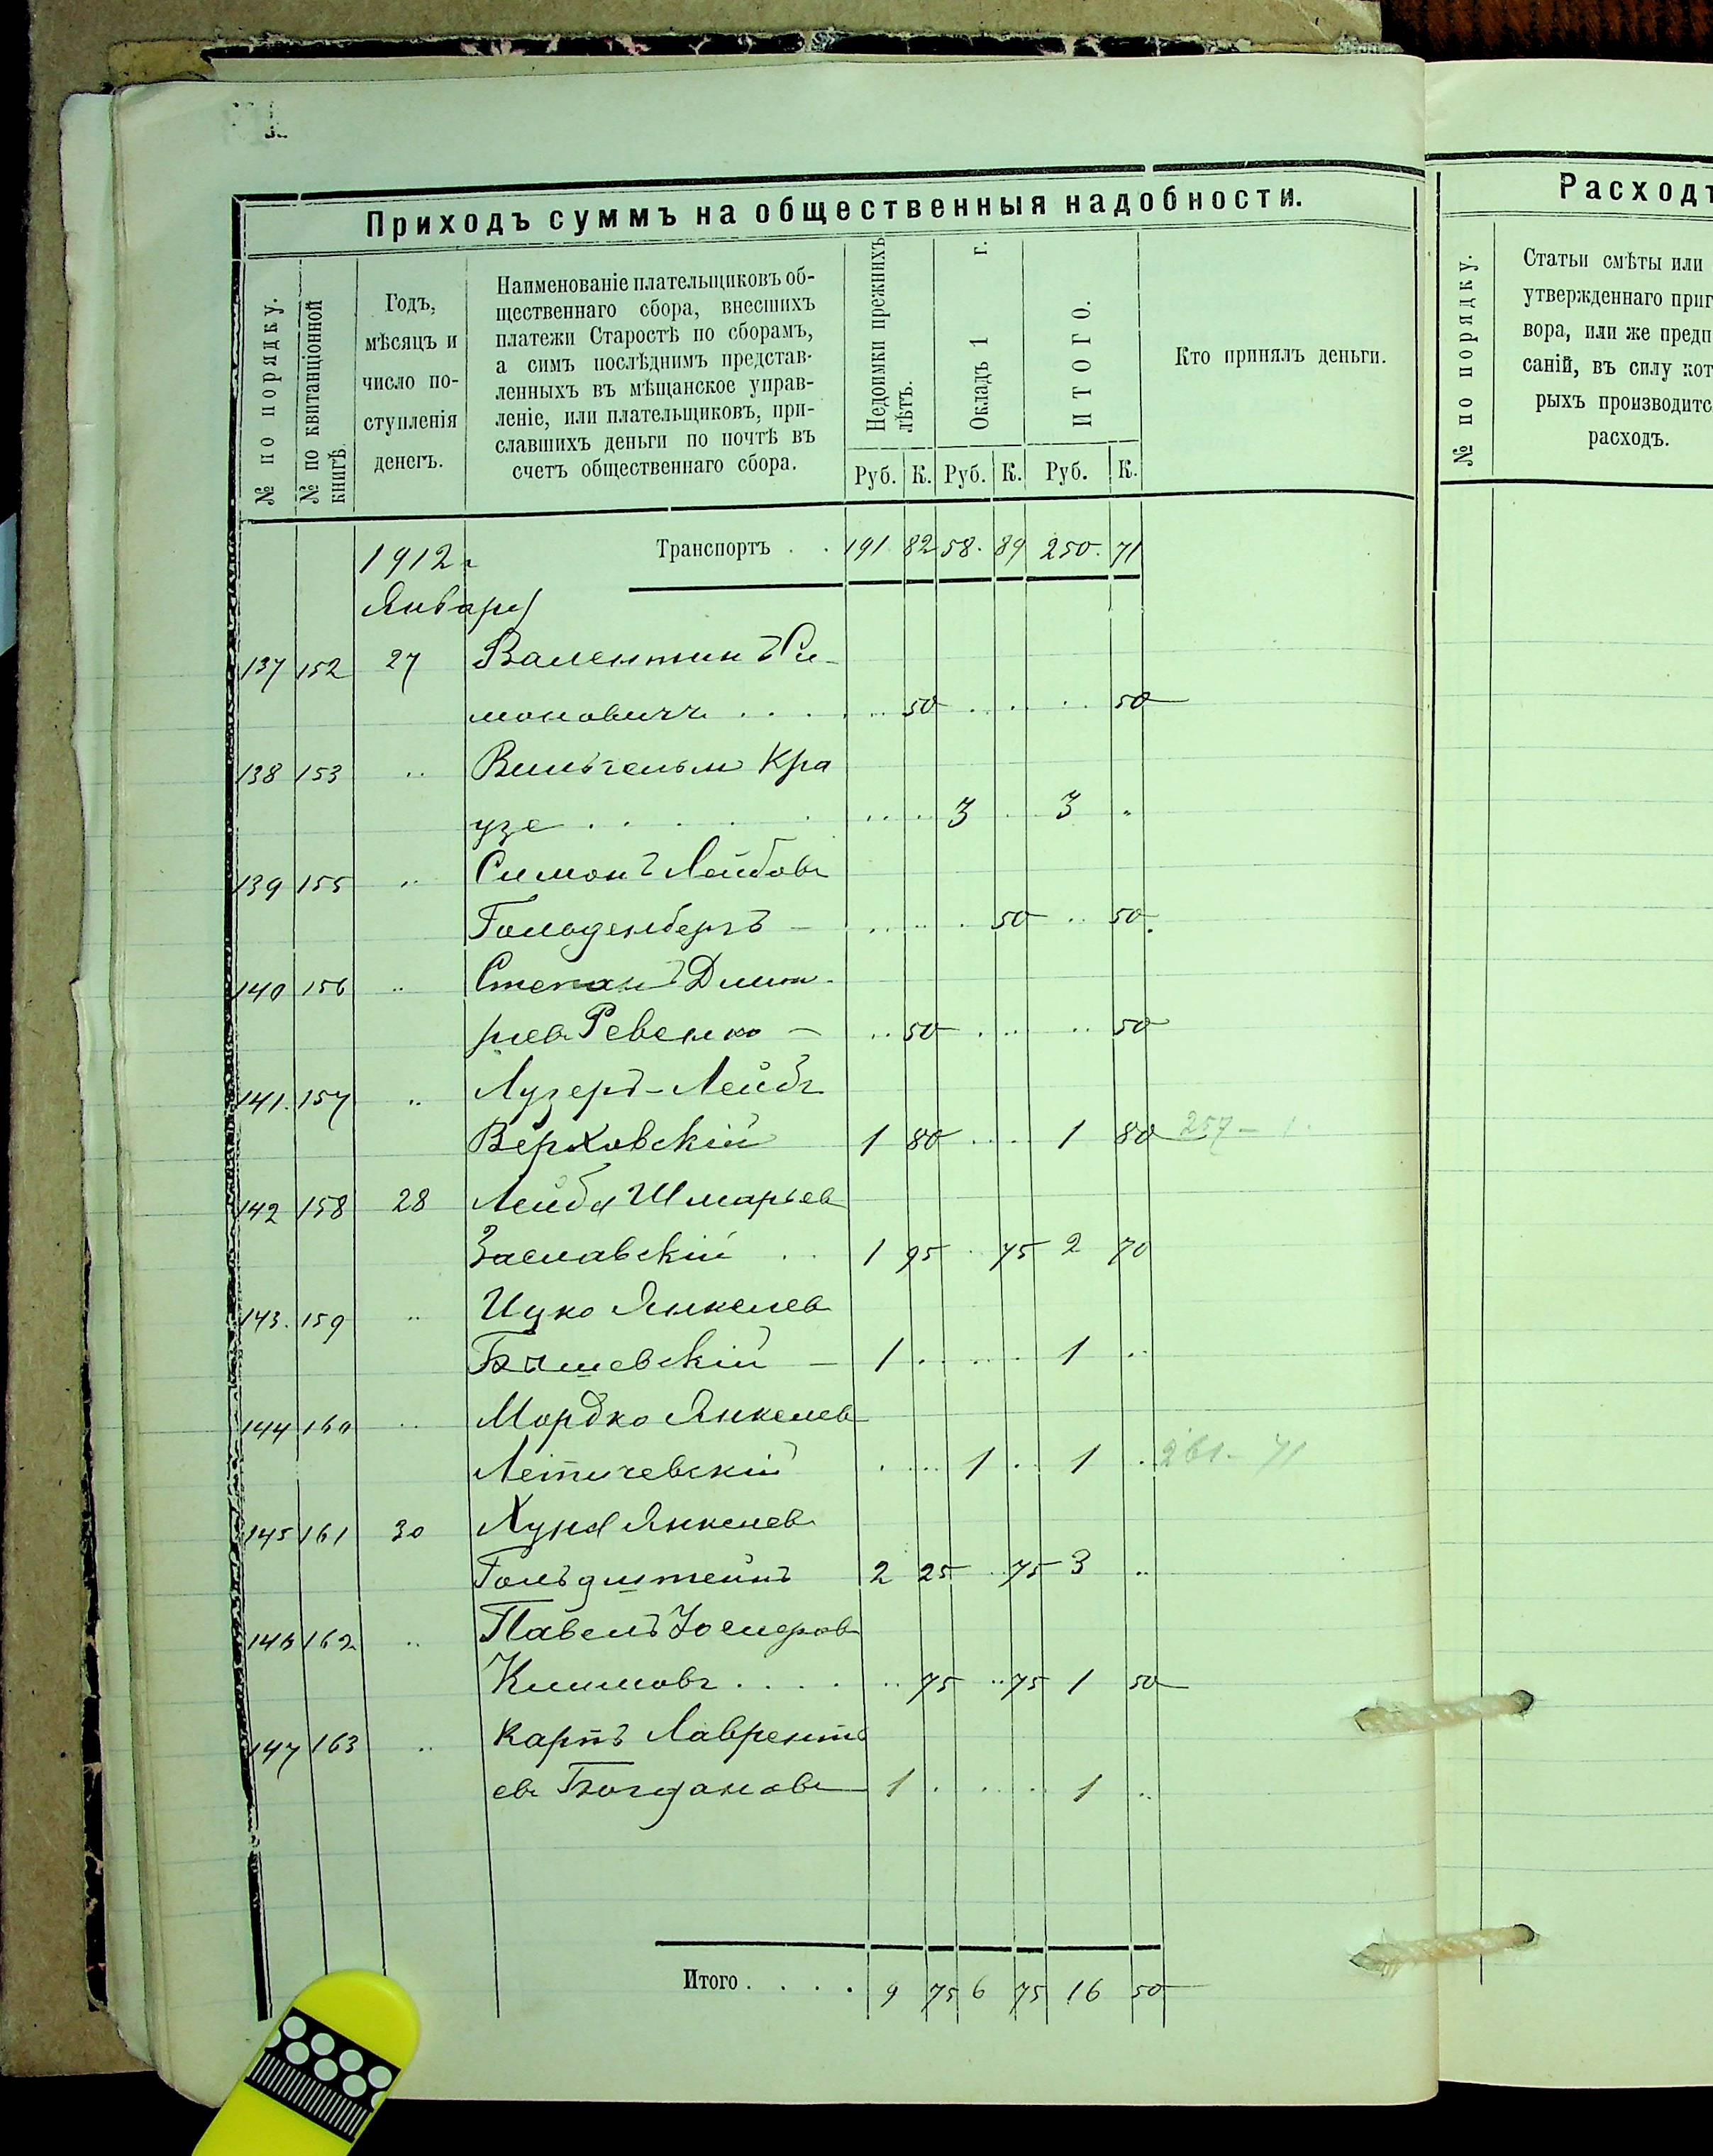 Приходъ суммъ на общественныя надобности.
№ по порядку.
№ по квитанціонной книгѣ.
Годъ, мѣсяцъ и число поступленія денегъ.
Наименованіе плательщиковъ об-
щественнаго сбора, внесшихъ
платежи Старостѣ по сборамъ,
а симъ послѣднимъ представ-
ленныхъ въ мѣщанское управ-
леніе, или плательщиковъ, при-
славшихъ деньги по почтѣ въ
счетъ общественнаго сбора.
Недоимки прежнихъ лѣтъ.
Окладъ 1 г.
ИТОГО.
Кто принялъ деньги.
Руб. К. Руб. К. Руб. К.
1912 г Транспортъ . . 191 82 58 . 89 250 . 71
Январь
137 152 27 Валентинъ Си-
моновичъ . . . . .. 50 . . . . 50
138 153 .. Вильгельм Кра
узе . . . . . . . 3 . 3 ..
139 155 .. Симонъ Лейбовъ
Гольденбергъ — . . . . 50 .. 50.
140 156 .. Степанъ Дмит-
ріев Ревенко — .. 50 . .. .. 50
141. 157 .. Лузеръ-Лейбъ
Верховскій 1 80 . . . . 1 80 257 — 1.
142 158 28 Лейба Шмарьев
Заславскій . . 1 95 . 75 2 70
143. 159 .. Ицко Янкелев
Бышевскій — 1 . . . . 1 ..
144 160 .. Мордко Янкелев
Летичевскій . . . . 1 . . 1 . 261 - 71
145 161 30 Хуна Янкелев
Гольдштейнъ 2 25 .. 75 3 ..
146 162 .. Павелъ Іосифов
Климовъ . . . . .. 75 .. 75 1 50
147 163 .. Карпъ Лавренть
ев Богдановъ 1 . . . . 1 ..
Итого . . . . 9 75 6 75 16 50
Расходъ
№ по порядку.
Статьи смѣты или
утвержденнаго приг
вора, или же предп
саній, въ силу кот
рыхъ производитс
расходъ.